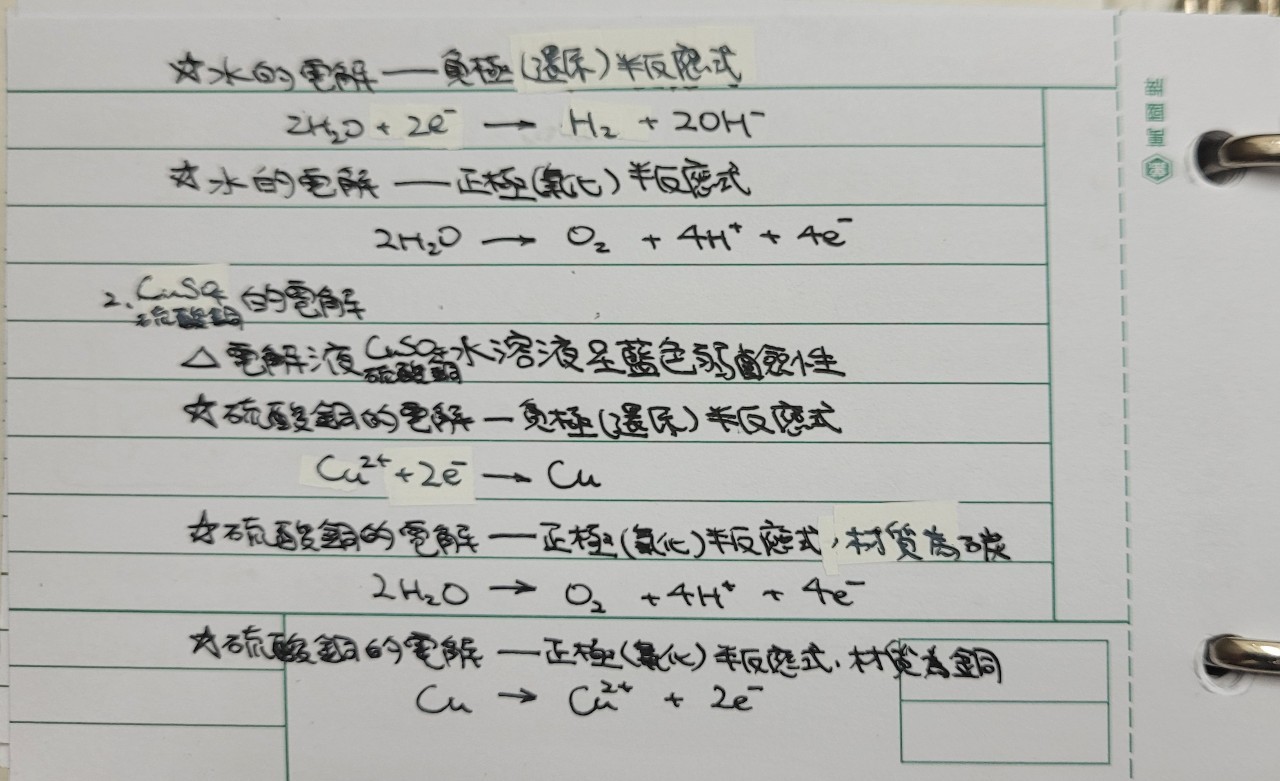 ☆水的電解——負極(還原)半反應式
2H₂O + 2e⁻ → H₂ + 2OH⁻
☆水的電解——正極(氧化)半反應式
2H₂O → O₂ + 4H⁺ + 4e⁻
2. CuSO₄ 的電解
硫酸銅
△電解液CuSO₄水溶液呈藍色弱酸性
硫酸銅
☆硫酸銅的電解—負極(還原)半反應式
Cu²⁺ + 2e⁻ → Cu
☆硫酸銅的電解——正極(氧化)半反應式,材質為碳
2H₂O → O₂ + 4H⁺ + 4e⁻
☆硫酸銅的電解——正極(氧化)半反應式,材質為銅
Cu → Cu²⁺ + 2e⁻